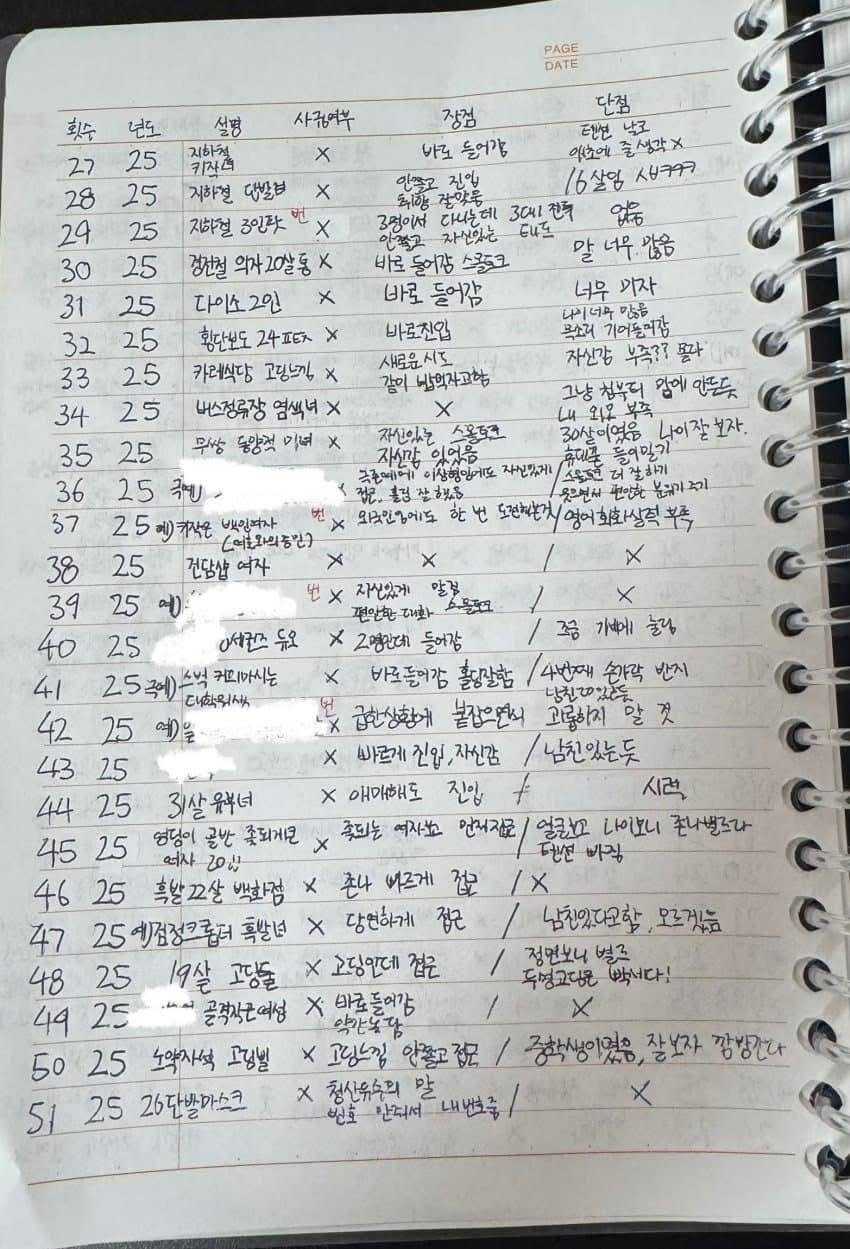 PAGE
DATE
횟수 년도 설명 사귐여부 장점 단점
27 25 지하철 키작녀 X 바로 들어감 텐션 낮고 애초에 줄 생각 X
28 25 지하철 단발녀 X 안쫄고 진입 취향 잘맞음 16살임 ㅅㅂㅋㅋㅋ
29 25 지하철 3인팟 번 X 3명이서 다니는데 3대1 전투 안쫄고 자신있는 태도 없음
30 25 의자 20살 통 X 바로 들어감 스몰토크 말 너무 많음
31 25 다이소 2인 X 바로 들어감 너무
32 25 횡단보도 24 X 바로진입 나이 너무 많음 목소리 기어들어감
33 25 카레식당 고딩느낌 X 새로운시도 같이 밥먹자고함 자신감 부족?? 몰라
34 25 버스정류장 염색녀 X X 그냥 첨부터 맘에 안든듯 내 외모 부족
35 25 무쌍 동양적 미녀 X 자신있는 스몰토크 자신감 있었음 30살이였음 나이 잘 보자. 휴대폰 들이밀기
36 25 극예) X 이상형임에도 자신있게 접근, 잘 했음 / 스몰토크 더 잘하기 웃으면서 편안한 분위기 주기
37 25 예) 키작은 백인여자 번 X 외국인임에도 한 번 도전했는것 / 영어회화실력 부족
38 25 전담샵 여자 X X / X
39 25 예) 번 X 자신있게 말검 편안한 대화 스몰토크 / X
40 25 듀오 X 2명인데 들어감 / 조금 기빽에 눌림
41 25 극예) 스벅 커피마시는 대학원생 X 바로들어감 홀딩잘함 / 4번째 손가락 반지 남친 있는듯
42 25 예) 번 X 급한상황에 붙잡으면서 괴롭히지 말 것
43 25 X 빠르게 진입, 자신감 / 남친있는듯
44 25 31살 유부녀 X 애매해도 진입 / 시력
45 25 엉덩이 골반 좆되게큰 여자 20 X 좆되는 여자보고 먼저접근 / 얼굴보고 나이보니 존나별로다 텐션 빠짐
46 25 흑발 22살 백화점 X 존나 빠르게 접근 / X
47 25 예) 검정크롭티 흑발녀 X 당연하게 접근 / 남친있다고함, 모르겠음
48 25 19살 고딩들 X 고딩인데 접근 / 정면보니 별로 두명고딩은 빡세다!
49 25 골격작은여성 X 바로들어감 약간농담 / X
50 25 노약자석 고딩삘 X 고딩느낌 안쫄고접근 / 중학생이였음, 잘보자 깜방간다
51 25 26단발마스크 X 청산유수의 말 번호 안줘서 내번호줌 / X